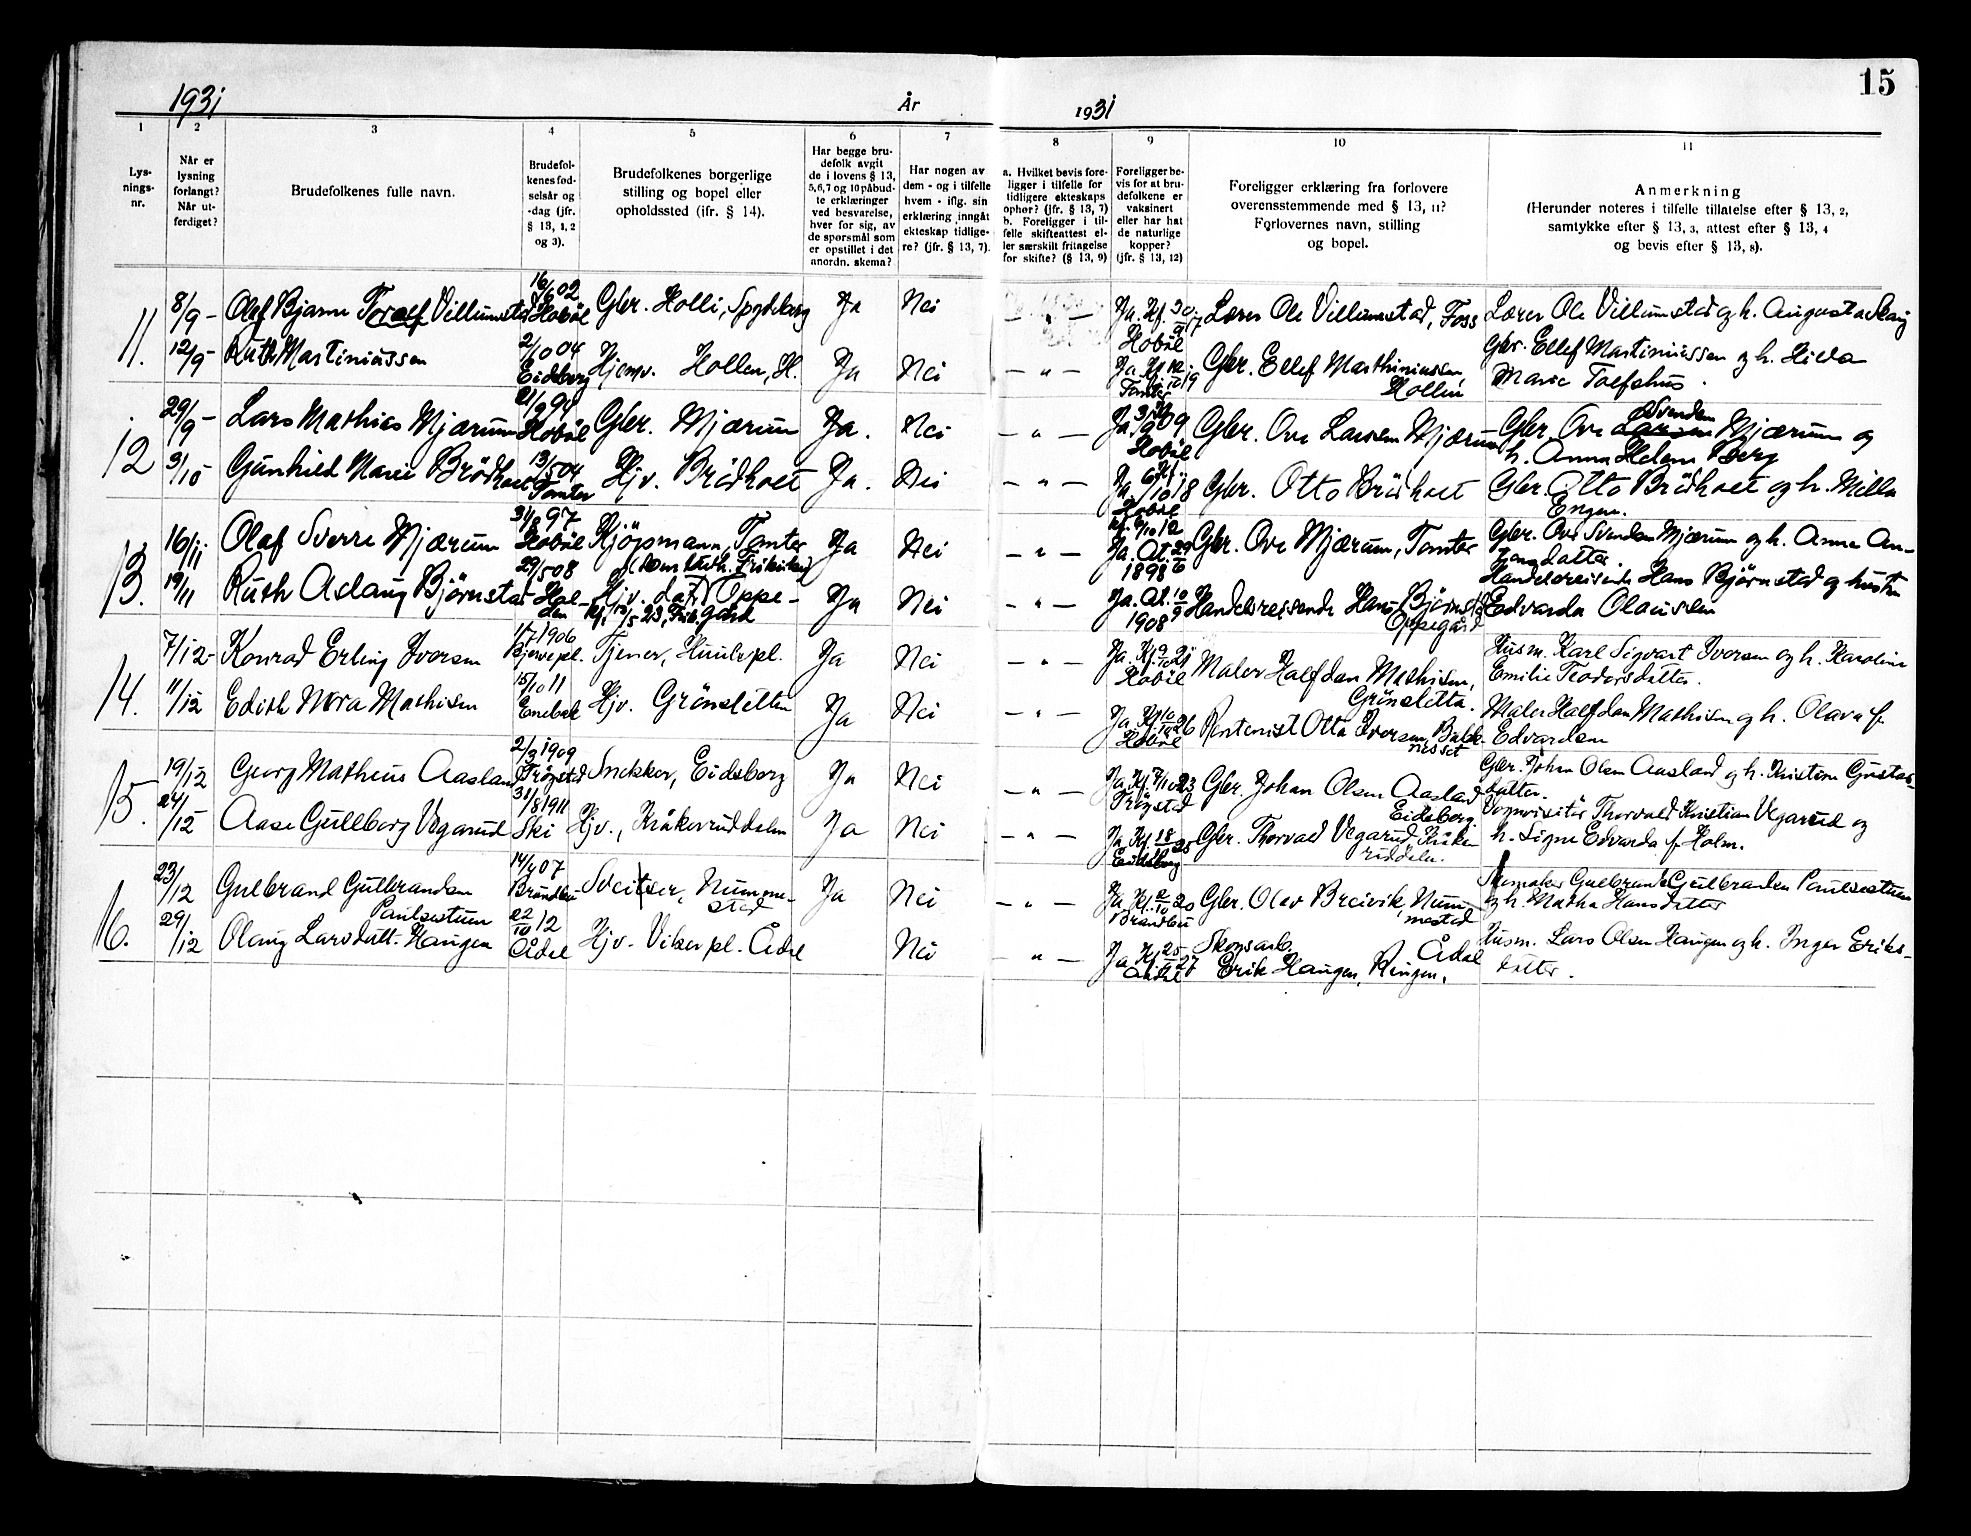 15
1931 År 1931
1 2 3 4 5 6 7 8 9 10 11
Lys-
nings-
nr.
Når er
lysning
forlangt?
Når ut-
ferdiget?
Brudefolkenes fulle navn.
Brudefol-
kenes fød-
selsår og
-dag (jfr.
§ 13, 1, 2
og 3).
Brudefolkenes borgerlige
stilling og bopel eller
opholdssted (ifr. § 14).
Har begge bru-
defolk avgit
de i lovens § 13,
5, 6, 7 og 10 påbud-
te erklæringer
ved besvarelse,
hver for sig, av
de spørsmål som
er opstillet i det
anordn. skema?
Har nogen av
dem - og i tilfelle
hvem - iflg. sin
erklæring inngått
ekteskap tidlige-
re? (jfr. § 13, 7).
a. Hvilket bevis fore-
ligger i tilfelle for
tidligere ekteskaps
ophør? (jfr. § 13, 7)
b. Foreligger i til-
felle skifteattest el-
ler særskilt fritagelse
for skifte? (§ 13, 9)
Foreligger be-
vis for at bru-
defolkene er
vaksinert
eller har hat
de naturlige
kopper?
(jfr. § 13, 12)
Foreligger erklæring fra forlovere
overensstemmende med § 13, 11?
Forlovernes navn, stilling
og bopel.
Anmerkning
(Herunder noteres i tilfelle tillatelse efter § 13, 2,
samtykke efter § 13, 3, attest efter § 13, 4
og bevis efter § 13, 8).
11. 8/9 - Olaf Bjarne Toralf Villumstad 16/6 02 Hobøl Gbr. Holli, Spydeberg Ja Nei - " - Ja. Kf. Hobøl Lærer Ole Villumstad, Foss Lærer Ole Villumstad og h. Augusta
12/9 - Ruth Martiniussen 2/10 04 Eidsberg Hjemv. Hollen, H. Ja Nei - " - Ja Kf. Tomter Gbr. Ellef Marthiniussen, Hollin Gbr. Ellef Martiniussen og h. Hilda
Marie Toefshus.
12 29/9 - Lars Mathias Mjærum 21/9 94 Hobøl Gbr. Mjærum Ja. Nei - " - Ja 09 Hobøl Gbr. Ove Larsen Mjærum Gbr. Ove Larsen Svendsen Mjærum og
h. Anna Helene Berg
3/10 Gunhild Marie Brødholt 13/5 04 Tomter Hjv. Brødholt Ja. Nei - " - Ja 6/10 18 Hobøl Gbr. Otto Brødholt Gbr. Otto Brødholt og h. Milla
Engen.
13. 16/11 Olaf Sverre Mjærum 31/8 97 Hobøl Kjöpmann, Tomter Ja Nei - " - Ja. At. 1898 Gbr. Ove Mjærum, Tomter Gbr. Ove Svendsen Mjærum og h. Anna
19/11 Ruth Aslaug Björnstad 29/5 08 Halden Hjv. Oppegård Ja Nei - " - Ja. At. 1908 Handelsreisende Hans Björnstad Oppegård Handelsreisende Hans Björnstad og hustru
Edvarda Olaussen
14. 7/12 - Konrad Erling Iversen 1/7 1906 Tjener, Huulepl. Ja Nei - " - Ja. Kf. Hobøl Maler Halfdan Mathisen, Grönsletta. Husm. Karl Sigvart Iversen og h. Karoline
Emilie Teodorsdatter.
11/12 Edith Nora Mathisen 15/10 11 Enebak Hjv. Grönsletten Ja Nei - " - Ja Kf. 26 Hobøl Rentenist Otto Iversen, Maler Halfdan Mathisen og h. Olava f.
Edvardsen
15. 19/12 Georg Matheus Aasland 2/3 1909 Trøgstad Snekker, Eidsberg Ja Nei - " - Ja, Kf. 7/10 23 Trögstad Gbr. Johan Olsen Aasland Eidsberg Gbr. Johan Olsen Aasland og h. Kristine Gustavs-
datter.
24/12 Aase Gullborg Vegarud 31/8 1911 Ski Hjv., Kråkeruddalen Ja Nei - " - Ja Kf. 18 25 Eidsberg Gbr. Thorvald Vegarud Vognvisitör Thorvald Kristian Vegarud og
h. Signe Edvarda f. Holm.
16. 23/12 Gulbrand Gulbrandsen Paulsestuen 14/4 07 Brandbu Sveitser, Nummestad Ja Nei - " - Ja Kf. 2/10 20 Brandbu Gbr. Olav Breivik, Nummestad Skomaker Gulbrand Gulbrandsen Paulsestuen
og h. Mathea Hansdatter
29/12 Olaug Larsdatt. Haugen 22/10 12 Ådal Hjv. Viker pl. Ådal Nei - " - Ja Kf. 25 27 Aadal Skogsarb. Erik Haugen, Ringen, Ådal Husm. Lars Olsen Haugen og h. Inger Eriks-
datter.